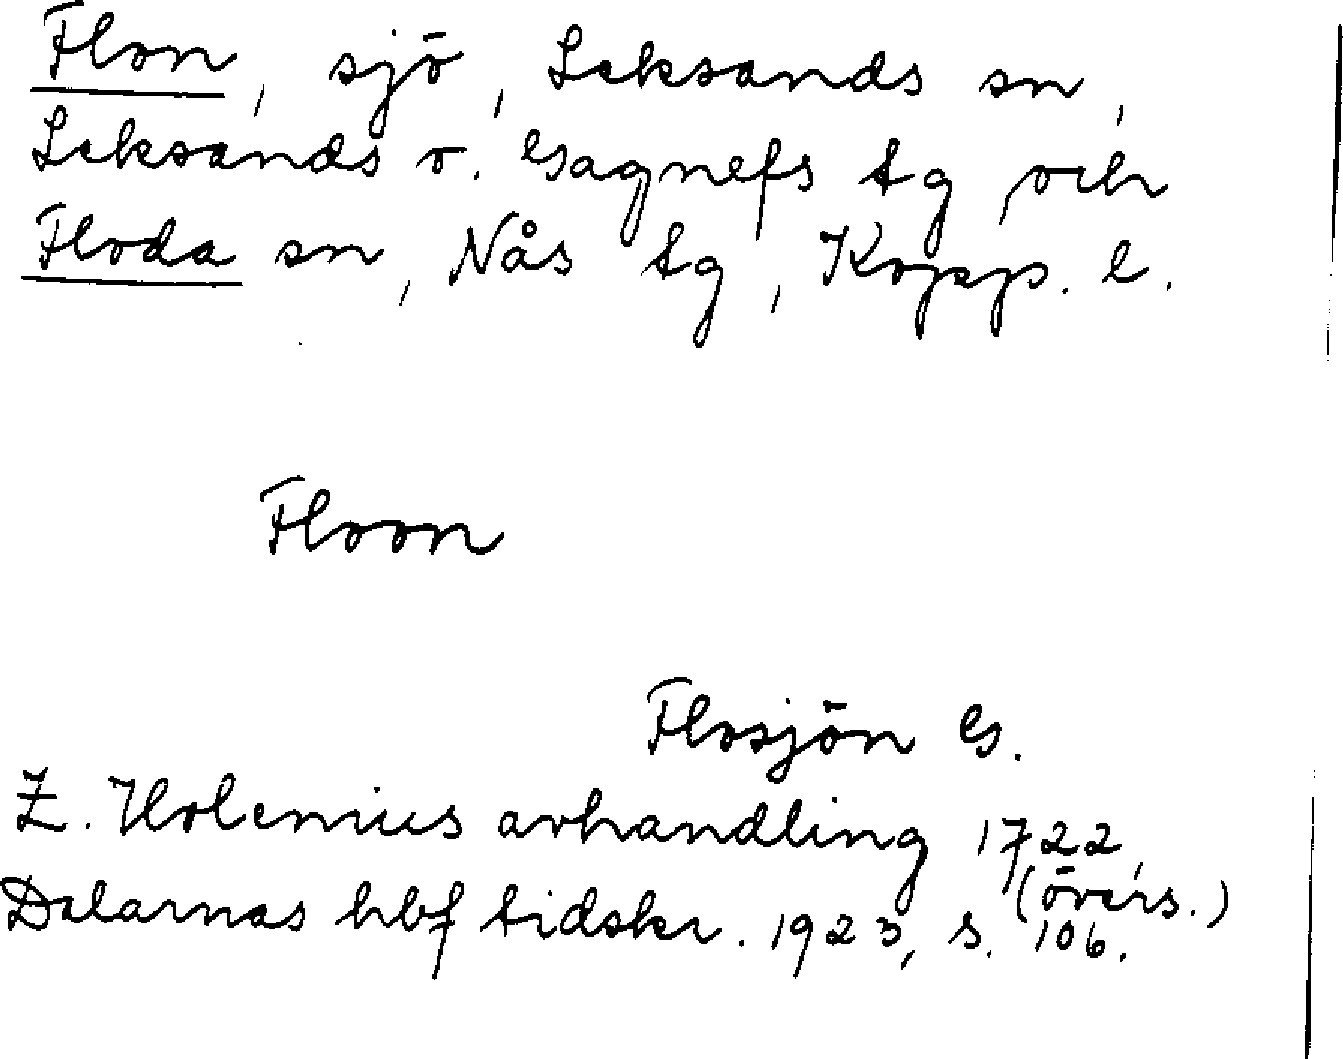 Flon, sjö, Leksands sn,
Leksands o. Gagnefs tg, och
Floda sn, Nås tg, Kopp. l.
Floon
Flosjön G.
Z. Holenius avhandling 1722,
(övers.)
Dalarnas hbf tidskr. 1923, s. 106.